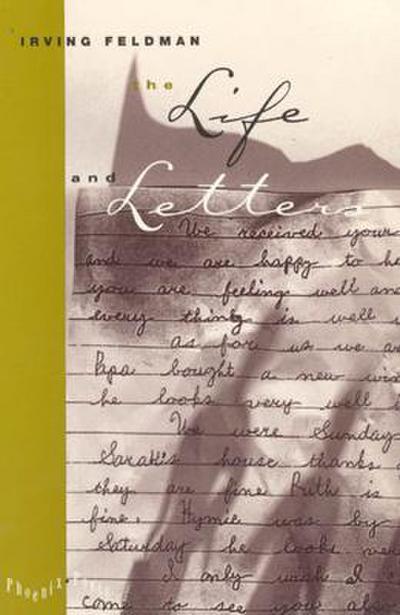 IRVING FELDMAN
the
Life
and
Letters
We received your
and we are happy to he
you are feeling well and
every thing is well
as for us we a
Papa bought a new
he looks very well
We were Sunday
Sarah's house thanks
they are fine Ruth is
fine. Hymie was by
Saturday he looks ver
I only wish I
come to see you
Phoenix